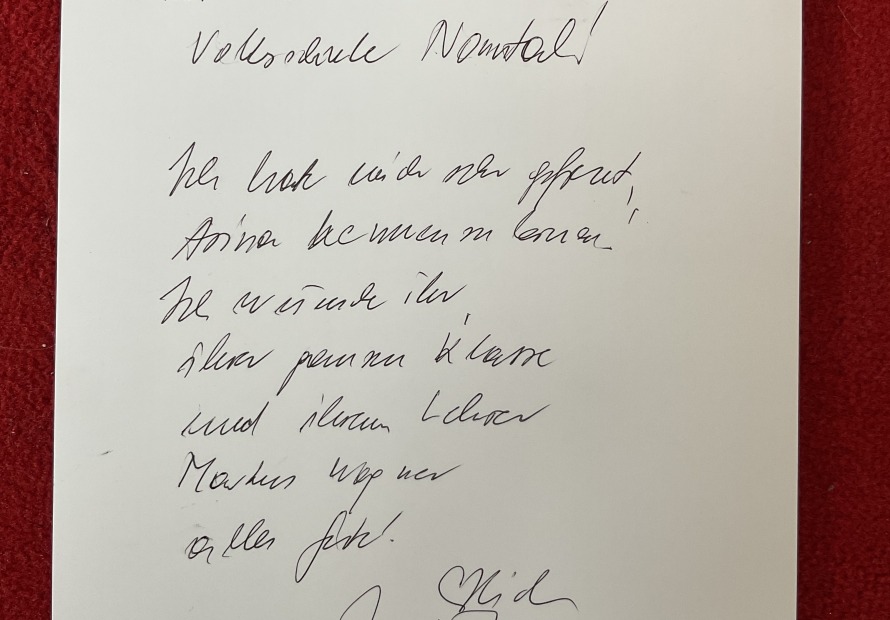 Volksschule
Ich habe mich sehr gefreut,
Arina kennenzulernen!
Ich wünsche ihr,
ihrer ganzen Klasse
und ihrem Lehrer
Markus Wagner
alles Gute!